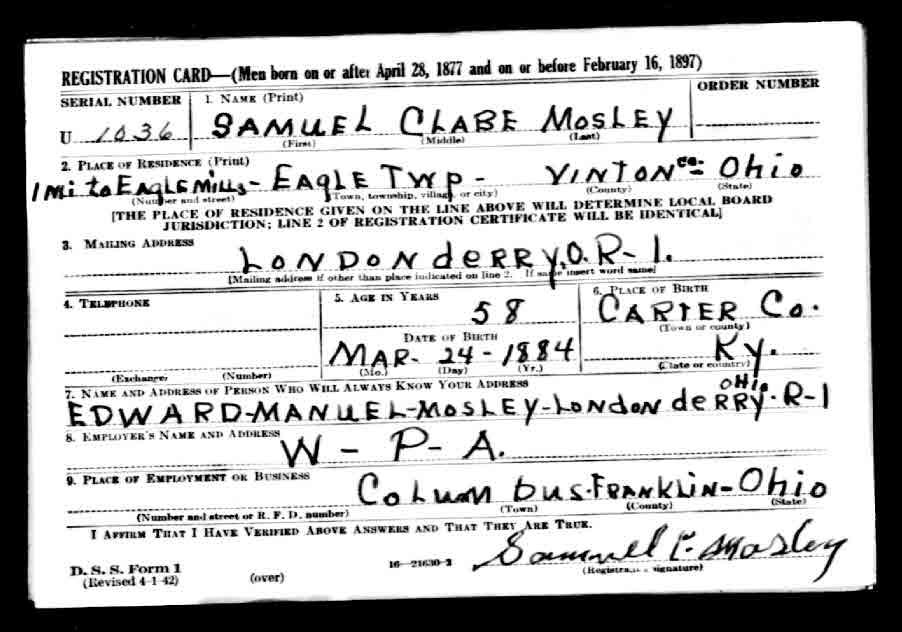 REGISTRATION CARD—(Men born on or after April 28, 1877 and on or before February 16, 1897)
SERIAL NUMBER
1. NAME (Print)
ORDER NUMBER
U 1036
SAMUEL CLABE MOSLEY
(First) (Middle) (Last)
2. PLACE OF RESIDENCE (Print)
1 Mi to EAGLE Mills- EAGLE TWP- VINTON co- Ohio
(Number and street) (Town, township, village, or city) (County) (State)
[THE PLACE OF RESIDENCE GIVEN ON THE LINE ABOVE WILL DETERMINE LOCAL BOARD
JURISDICTION; LINE 2 OF REGISTRATION CERTIFICATE WILL BE IDENTICAL]
3. MAILING ADDRESS
LONDONdeRRY, O. R-1.
[Mailing address if other than place indicated on line 2. If same insert word same]
4. TELEPHONE
5. AGE IN YEARS
6. PLACE OF BIRTH
58
CARTER Co.
(Town or county)
DATE OF BIRTH
MAR- 24-1884
Ky.
(Exchange) (Number)
(Mo.) (Day) (Yr.)
(State or country)
7. NAME AND ADDRESS OF PERSON WHO WILL ALWAYS KNOW YOUR ADDRESS
EDWARD-MANUEL-MOSLEY-LondondeRRY-OHio-R-1
8. EMPLOYER'S NAME AND ADDRESS
W-P-A.
9. PLACE OF EMPLOYMENT OR BUSINESS
Columbus-FRANKLIN-Ohio
(Number and street or R. F. D. number) (Town) (County) (State)
I AFFIRM THAT I HAVE VERIFIED ABOVE ANSWERS AND THAT THEY ARE TRUE.
Samuel C. Mosley
D. S. S. Form 1
(Revised 4-1-42) (over) 16—21630-2 (Registrant's signature)